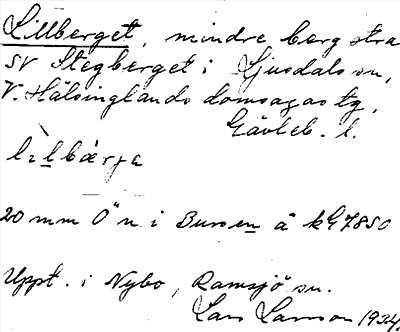 Lillberget, mindre berg strax
SV Stegberget i Ljusdals sn,
V. Hälsinglands domsagas tg,
Gävleb. l.
lìlbærja
20 mm Ö n i Buroen å kG 7850
Uppt. i Nybo, Ramsjö sn.
Lars Larsson 1934.